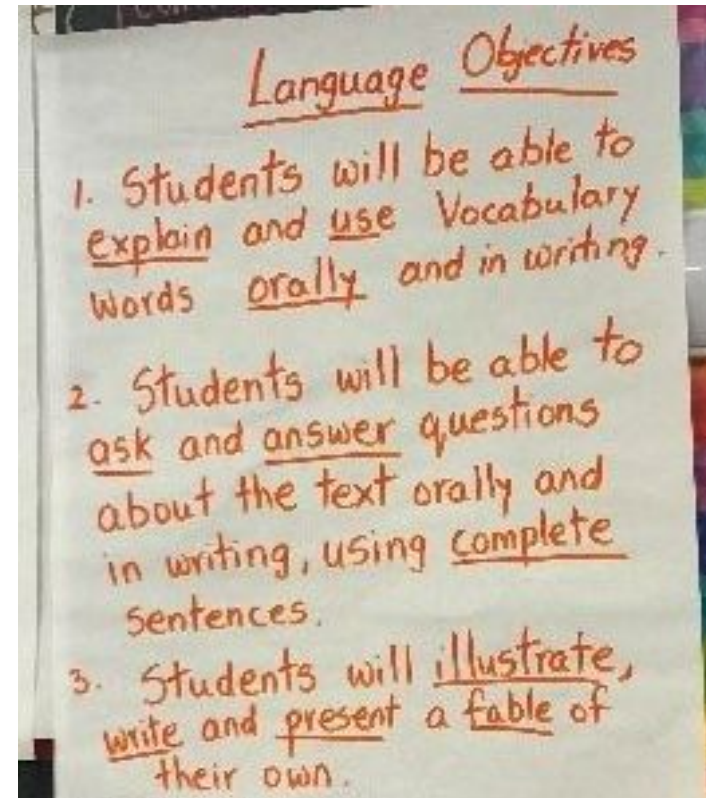 Language Objectives
1. Students will be able to
explain and use Vocabulary
Words orally and in writing.
2. Students will be able to
ask and answer questions
about the text orally and
in writing, using complete
sentences.
3. Students will illustrate,
write and present a fable of
their own.